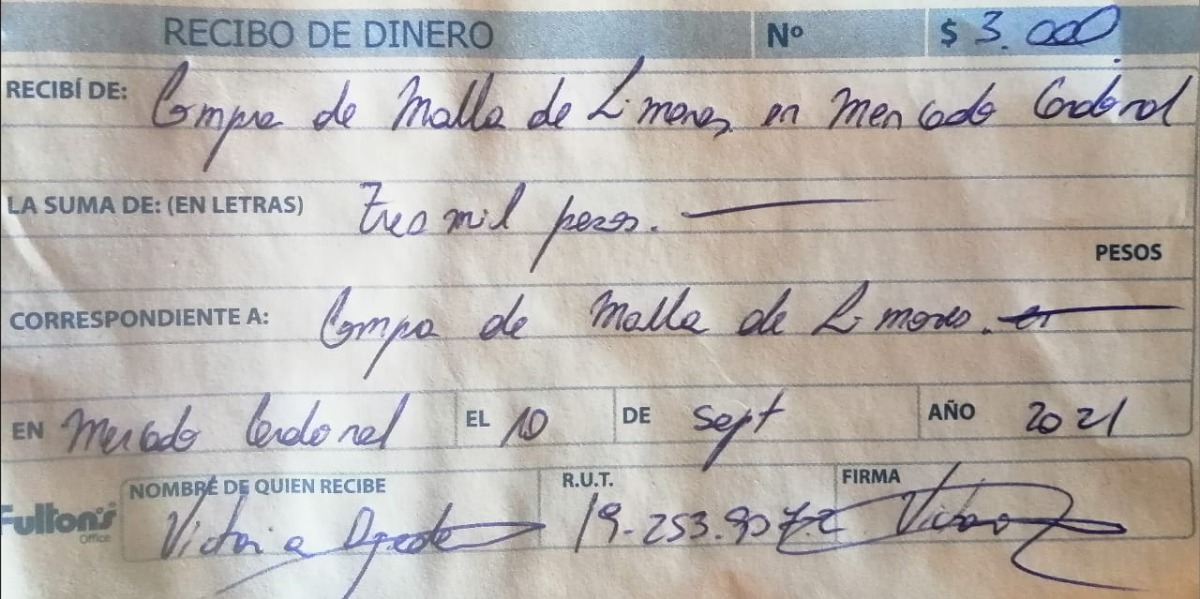 RECIBO DE DINERO Nº $ 3.000
RECIBÍ DE: Compra de Malla de Limones en Mercado Cardonal
LA SUMA DE: (EN LETRAS) tres mil pesos.
PESOS
CORRESPONDIENTE A: Compa de Malla de Limones. en
EN Mercado Cardonal EL 10 DE Sept AÑO 2021
NOMBRE DE QUIEN RECIBE R.U.T. FIRMA
Fulton's Office
Victoria 19-253.907-2 Victoria